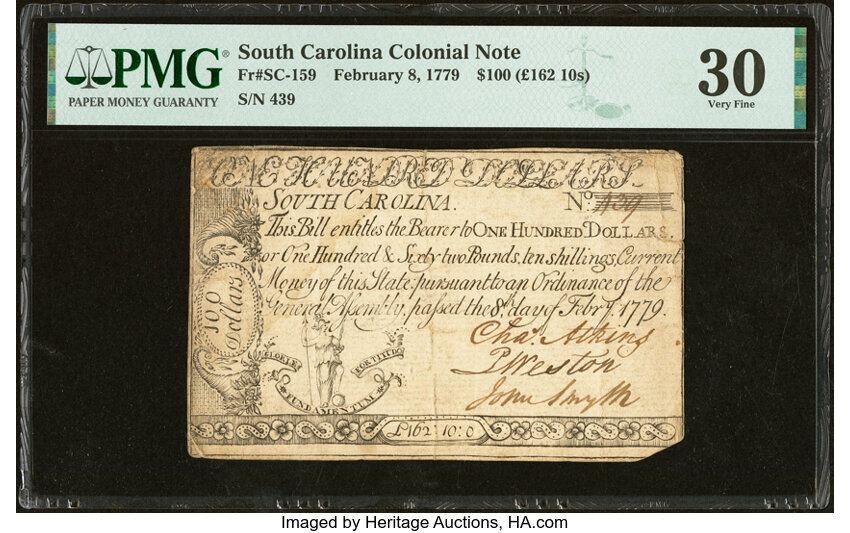 PMG®
PAPER MONEY GUARANTY
South Carolina Colonial Note
Fr#SC-159 February 8, 1779 $100 (£162 10s)
S/N 439
30
Very Fine
ONE HUNDRED DOLLARS.
SOUTH CAROLINA. No. 439
This Bill entitles the Bearer to ONE HUNDRED DOLLARS.
or One Hundred & Sixty two Pounds, ten shillings, Current
Money of this State: pursuant to an Ordinance of the
General Assembly, passed the 8th day of Febry. 1779.
100
Dollars
Chas. Atkins.
P Weston
John Smyth
FORTITUD
FUNDAMENTUM
£162:10:0
Imaged by Heritage Auctions, HA.com